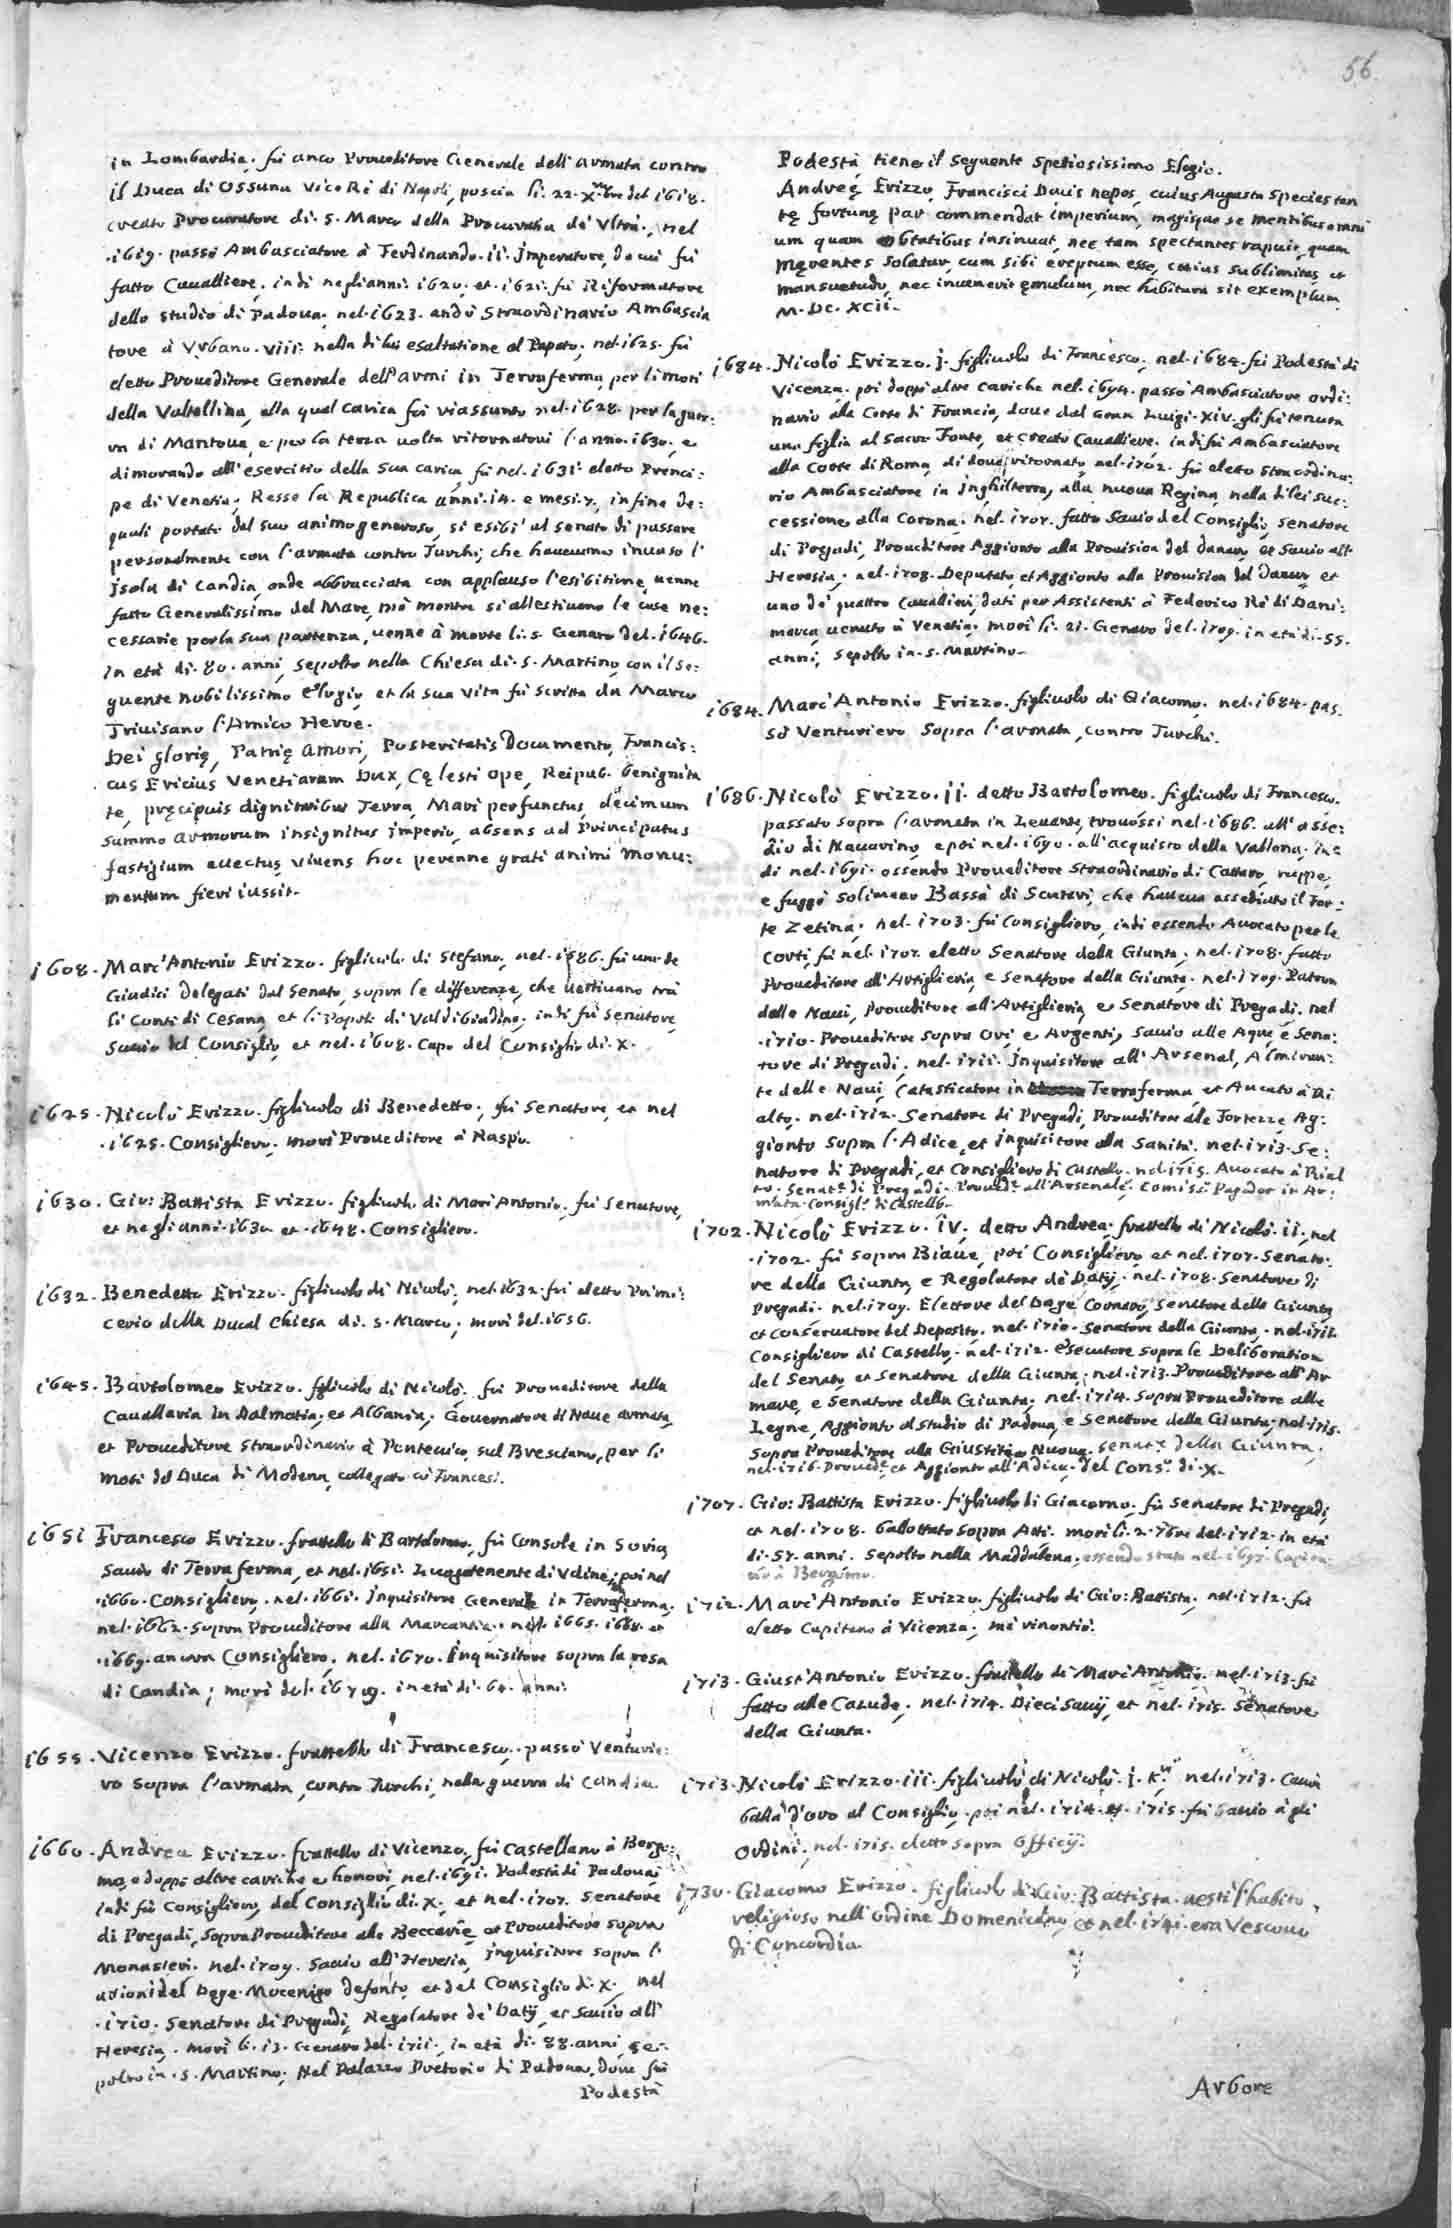 56
in Lombardia. fù anco Proueditore Generale dell'armata contro
il Duca di Ossuna Vice Rè di Napoli, poscia li. 22. Xmbre del. 1618.
creato Procuratore di. S. Marco della Procuratia de Vltra, nel
.1619. passò Ambasciatore à Ferdinando. ii. Imperatore, da cui fù
fatto Caualliere, indi negl'anni. 1620. et. 1621. fù Riformatore
dello studio di Padoua, nel. 1623. andò Straordinario Ambascia
tore à Vrbano. viii. nella di lui esaltatione al Papato, nel. 1625. fù
eletto Proueditore Generale dell'armi in Terraferma, per li moti
della Valtellina, alla qual carica fù riassunto nel. 1628. per la guer:
ra di Mantoua, e per la terza uolta ritornatoui l'anno. 1630. e
dimorando all'esercitio della sua carica, fù nel. 1631. eletto Prenci:
pe di Venetia, Resse la Republica anni. 14. e mesi. 7. in fine de:
quali portato dal suo animo generoso, si esibì al senato di passare
personalmente con l'armata contro Turchi, che haueuano inuaso l'
Isola di Candia, onde abbracciata con applauso l'esibitione, uenne
fatto Generalissimo del Mare, mà mentre si allestiuano le cose ne:
cessarie per la sua partenza, uenne à morte li. 3. Genaro del. 1646.
in età di. 80. anni, sepolto nella Chiesa di. S. Martino, con il se:
guente nobilissimo elogio, et la sua vita fù scritta da Marco
Triuisano l'Amico Heroe.
Dei glorię, Patrię amori, Posteritatis Documento, Francis:
cus Ericius Venetiarum Dux, Cęlesti ope, Reipub. benignita
te, pręcipuis dignitatibus Terra, Mari perfunctus, decimum
summo armorum insignitus imperio, absens ad Principatus
fastigium euectus, viuens hoc perenne grati animi monu:
mentum fieri iussit.
1608. Marc'Antonio Erizzo. figliuolo di Stefano, nel. 1586. fù uno de
Giudici delegati dal Senato, sopra le differenze, che uertiuano trà
li Conti di Cesana, et li Popoli di Valdibiadino, indi fù Senatore,
Sauio del Consiglio, et nel. 1608. Capo del Consiglio di. X.
1625. Nicolò Erizzo. figliuolo di Benedetto, fù Senatore, et nel
.1625. Consigliero. morì Proueditore à Raspo.
1630. Gio: Battista Erizzo. figliuolo di Marc'Antonio, fù Senatore,
et negl'anni. 1630. et. 1648. Consigliero.
1632. Benedetto Erizzo. figliuolo di Nicolò, nel. 1632. fù eletto Primi:
cerio della Ducal Chiesa di. S. Marco, morì del. 1656.
1645. Bartolomeo Erizzo. figliuolo di Nicolò, fù Proueditore della
Cauallaria in Dalmatia, et Albania, Gouernatore di Naue armata,
et Proueditore Straordinario à Ponteuico, sul Bresciano, per li
moti del Duca di Modena, collegato co' Francesi.
1651 Francesco Erizzo. fratello di Bartolomeo, fù Console in Soria,
Sauio di Terraferma, et nel. 1651. Luogotenente di Vdine, poi nel
.1660. Consigliero, nel. 1661. Inquisitore Generale in Terraferma,
nel. 1662. Sopra Proueditore alla Mercantia, nel. 1665. 1668. et
.1669. ancora Consigliero, nel. 1670. Inquisitore sopra la resa
di Candia; morì del. in età di. 64. anni.
1655. Vicenzo Erizzo. fratello di Francesco, passò Venturie:
ro sopra l'armata, contro Turchi, nella guerra di Candia.
1660. Andrea Erizzo. fratello di Vicenzo, fù Castellano à Berga:
mo, e doppò altre cariche, e honori, nel. 1691. Podestà di Padoua,
indi fù Consigliero, del Consiglio di. X. et nel. 1707. Senatore
di Pregadi, Sopra Proueditore alle Beccarie, et Proueditore sopra
Monasteri. nel. 1709. Sauio all'Heresia, Inquisitore sopra l'
ationi del Doge Mocenigo defonto, et del Consiglio di. X. nel
.1710. Senatore di Pregadi, Regolatore de Datij, et Sauio all'
Heresia. morì li. 13. Genaro del. 1711. in età di. 88. anni, se:
polto in. S. Martino, Nel Palazzo Pretorio di Padoua, doue fù
Podestà
Podestà tiene il seguente spetiosissimo Elogio.
Andreę Erizzo, Francisci Ducis nepos, cuius Augusta species tan
tę fortunę par commendat imperium, magisque se mentibus omni
um quam obtatibus insinuat, nec tam spectantes rapuit, quam
męrentes solatur, cum sibi ereptum esse, cuius sublimitas et
mansuetudo, nec inuenerit ęmulum, nec habitura sit exemplum
M. DC. XCII.
1684. Nicolò Erizzo. j. figliuolo di Francesco, nel. 1684. fù Podestà di
Vicenza, poi doppò altre cariche nel. 1694. passò Ambasciatore ordi:
nario alla Corte di Francia, doue dal Gran Luigi. XIV. gli fù tenuta
una figlia al Sacro Fonte, et creato Caualliere. indi fù Ambasciatore
alla Corte di Roma, di doue ritornato, nel. 1702. fù eletto straordina:
rio Ambasciatore in Inghilterra, alla nuoua Regina, nella di lei suc:
cessione alla Corona. nel. 1707. fatto Sauio del Consiglio, Senatore
di Pregadi, Proueditore Aggionto alla Prouision del danaro, et Sauio all'
Heresia, nel. 1708. Deputato, et Aggionto alla Prouision del danaro, et
uno de quattro Cauallieri, dati per Assistenti à Federico Rè di Dani:
marca uenuto à Venetia. morì li. 21. Genaro del. 1709. in età di. 55.
anni, sepolto in. S. Martino.
1684. Marc'Antonio Erizzo. figliuolo di Giacomo, nel. 1684. pas:
sò Venturiero sopra l'armata, contro Turchi.
1686. Nicolò Erizzo. ii. detto Bartolomeo. figliuolo di Francesco.
passato sopra l'armata in Leuante, trouossi nel. 1686. all'asse:
dio di Nauarino, e poi nel. 1690. all'acquisto della Vallona. in:
di nel. 1691. essendo Proueditore Straordinario di Cattaro, ruppe,
e fuggò Solimano Bassà di Scutari, che haueua assediato il For:
te Zetina, nel. 1703. fù Consigliero, indi essendo Auocato per le
Corti, fù nel. 1707. eletto Senatore della Giunta, nel. 1708. fatto
Proueditore all'Artiglieria, e Senatore della Giunta, nel. 1709. Patron
delle Naui, Proueditore all'Artiglieria, e Senatore di Pregadi, nel
.1710. Proueditore sopra Ori, e Argenti, Sauio alle Aque, e Sena:
tore di Pregadi, nel. 1711. Inquisitore all'Arsenal, Almiran:
te delle Naui, Catasticatore in Terraferma, et Auocato à Ri
alto, nel. 1712. Senatore di Pregadi, Proueditore alle Fortezze, Ag:
gionto sopra l'Adice, et Inquisitore alla Sanità. nel. 1713. Se:
natore di Pregadi, et Consigliero di Castello. nel. 1715. Auocato à Rial
to. Senate. di Pregadi. Proued.e all'Arsenale. Comiss.o Pagador in Ar:
mata. Consigl.o di Castello.
1702. Nicolò Erizzo. iv. detto Andrea. fratello di Nicolò. ii. nel
.1702. fù sopra Biaue, poi Consigliero, et nel. 1707. Senato:
re della Giunta, e Regolatore de Datij, nel. 1708. Senatore di
Pregadi. nel. 1709. Elettore del Doge Cornaro, Senatore della Giunta,
et Conseruatore del Deposito. nel. 1710. Senatore della Giunta, nel. 1711.
Consigliero di Castello, nel. 1712. esecutore sopra le Deliberation
del Senato, et Senatore della Giunta, nel. 1713. Proueditore all'Ar
mare, e Senatore della Giunta, nel. 1714. Sopra Proueditore alle
Legne, Aggionto al studio di Padoua, e Senatore della Giunta, nel. 1715.
Sopra Proueditore alla Giustitia Nuoua. Senat.e della Giunta,
nel. 1716. Proued.e et Aggionto all'Adice. del Cons.o di. X.
1707. Gio: Battista Erizzo. figliuolo di Giacomo, fù Senatore di Pregadi,
et nel. 1708. ballottato sopra Atti. morì li. 2. 7bre del. 1712. in età
di. 57. anni. sepolto nella Maddalena. essendo stato nel. 1697. Capita:
nio à Bergamo.
1712. Marc'Antonio Erizzo. figliuolo di Gio: Battista, nel. 1712. fù
eletto Capitano à Vicenza, mà rinontiò.
1713. Giust'Antonio Erizzo. fratello di Marc'Antonio, nel. 1713. fù
fatto alle Cazude, nel. 1714. Dieci Sauij, et nel. 1715. Senatore
della Giunta.
1713. Nicolò Erizzo. iii. figliuolo di Nicolò. j. K.r nel. 1713. Cauò
balla d'oro al Consiglio, poi nel. 1714. et. 1715. fù Sauio à gli
Ordini, nel. 1715. eletto sopra Officij.
1730. Giacomo Erizzo. figliuolo di Gio: Battista. uestì l'habito
religioso nell'ordine Domenicano, et nel. 1741. era Vescouo
di Concordia.
Arbore